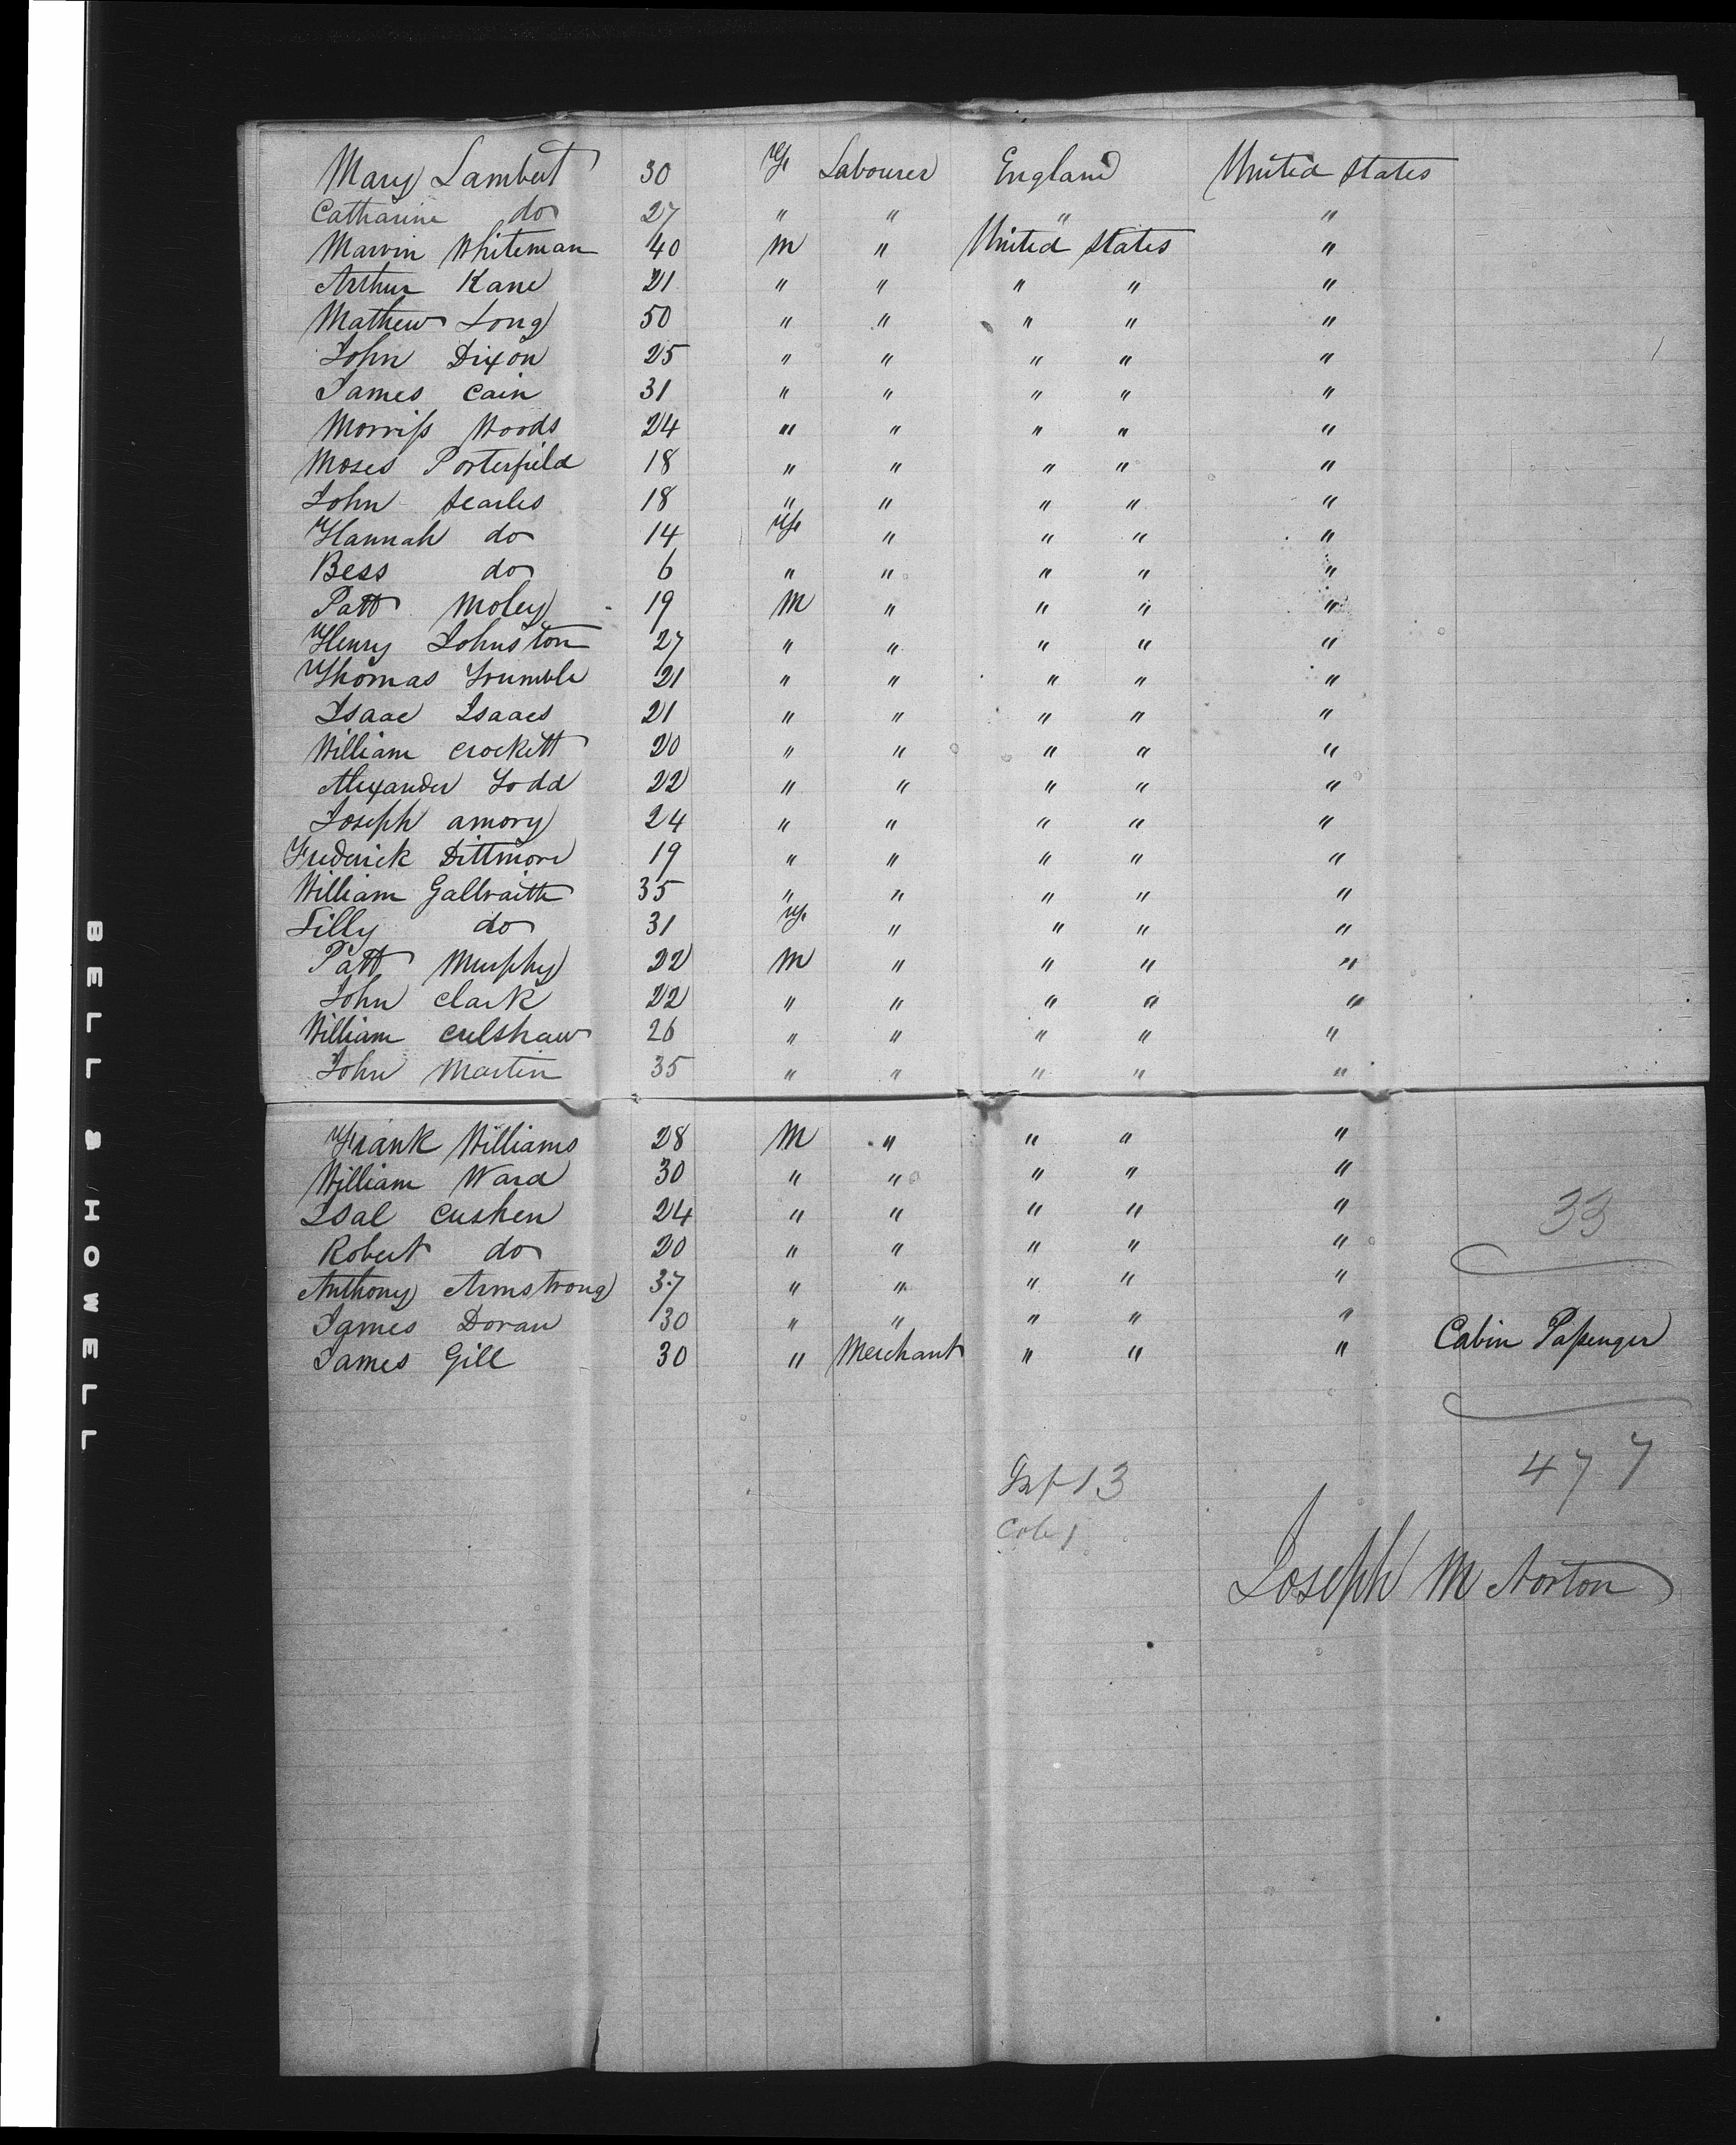 Mary Lambert 30 F Labourer England United States
Catharine do 27 " " " "
Marvin Whiteman 40 M " United States "
Arthur Kane 21 " " " " "
Mathew Long 50 " " " " "
John Dixon 25 " " " " "
James Cain 31 " " " " "
Morriss Woods 24 " " " " "
Moses Porterfield 18 " " " " "
John Searles 18 " " " " "
Hannah do 14 F " " " "
Bess do 6 " " " " "
Patt Moley 19 M " " " "
Henry Johnston 27 " " " " "
Thomas Trumble 21 " " " " "
Isaac Isaacs 21 " " " " "
William Crockett 20 " " " " "
Alexander Todd 22 " " " " "
Joseph Amory 24 " " " " "
Frederick Dittmore 19 " " " " "
William Galbraith 35 " " " " "
Tilly do 31 F " " " "
Patt Murphy 22 M " " " "
John Clark 22 " " " " "
William Culshaw 26 " " " " "
John Martin 35 " " " " "
Frank Williams 28 M " " " "
William Ward 30 " " " " "
Isal Cushen 24 " " " " "
33
Robert do 20 " " " " "
Anthony Armstrong 37 " " " " "
James Doran 30 " " " " "
James Gill 30 " Merchant " " " Cabin Passenger
477
Inf 13
Joseph M Norton
BELL & HOWELL